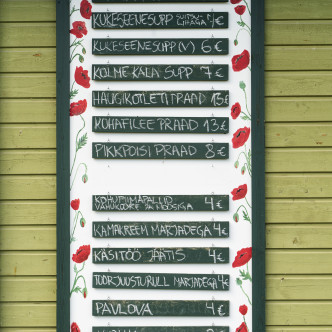 KUKESEENESUPP LIHAGA 7€
KUKESEENESUPP (V) 6€
KOLME KALA SUPP 7€
HAUGIKOTLETI PRAAD 13€
KOHAFILEE PRAAD 13€
PIKKPOISI PRAAD 8€
KOHUPIIMAPALLID
VAHUKOORE JA MOOSIGA 4€
KAMAKREEM MARJADEGA 4€
KÄSITÖÖ JÄÄTIS 4€
TOORJUUSTURULL MARJADEGA 4€
PAVLOVA 4€